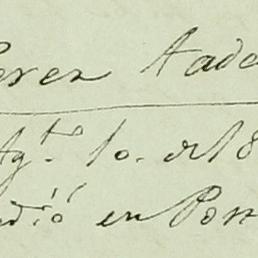 Perez Aada
Agto. 10. de 18
ndió en Pos